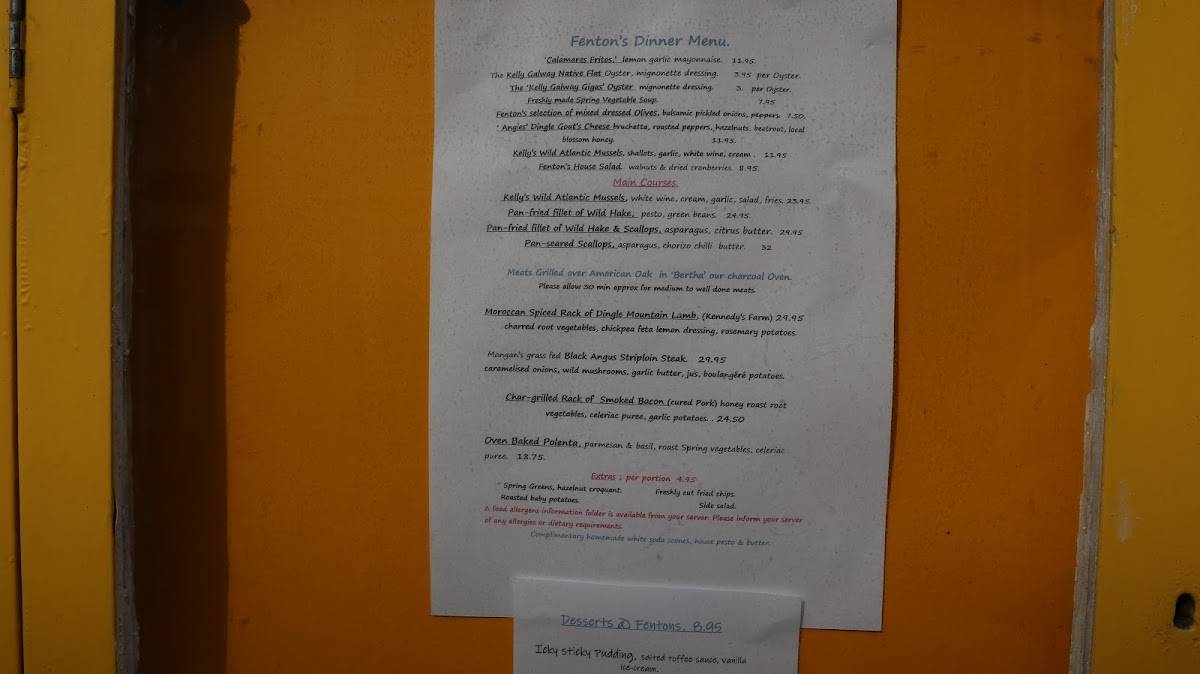 Fenton's Dinner Menu.
'Calamares Fritos,' lemon garlic mayonnaise. 11.95.
The Kelly Galway Native Flat Oyster, mignonette dressing. 3.95 per Oyster.
The 'Kelly Galway Gigas' Oyster mignonette dressing. 3. per Oyster.
Freshly made Spring Vegetable Soup. 7.95
Fenton's selection of mixed dressed Olives, balsamic pickled onions, peppers. 7.50.
' Angies' Dingle Goat's Cheese bruchetta, roasted peppers, hazelnuts, beetroot, local
blossom honey. 11.95.
Kelly's Wild Atlantic Mussels, shallots, garlic, white wine, cream . 11.95
Fenton's House Salad. walnuts & dried cranberries. 8.95.
Main Courses.
Kelly's Wild Atlantic Mussels, white wine, cream, garlic, salad, fries. 23.95.
Pan-fried fillet of Wild Hake, pesto, green beans. 24.95.
Pan-fried fillet of Wild Hake & Scallops, asparagus, citrus butter. 29.95
Pan-seared Scallops, asparagus, chorizo chilli butter. 32
Meats Grilled over American Oak in 'Bertha' our charcoal Oven.
Please allow 30 min approx for medium to well done meats.
Moroccan Spiced Rack of Dingle Mountain Lamb, (Kennedy's Farm) 29.95
charred root vegetables, chickpea feta lemon dressing, rosemary potatoes.
Mangan's grass fed Black Angus Striploin Steak. 29.95
caramelised onions, wild mushrooms, garlic butter, jus, boulangéré potatoes.
Char-grilled Rack of Smoked Bacon (cured Pork) honey roast root
vegetables, celeriac puree, garlic potatoes. . 24.50
Oven Baked Polenta, parmesan & basil, roast Spring vegetables, celeriac
puree. 18.75.
Extras : per portion 4.95
Spring Greens, hazelnut croquant. Freshly cut fried chips.
Roasted baby potatoes. Side salad.
A food allergens information folder is available from your server. Please inform your server
of any allergies or dietary requirements.
Complimentary homemade white soda scones, house pesto & butter
Desserts @ Fentons. 8.95
Icky Sticky Pudding, salted toffee sauce, vanilla
ice-cream.